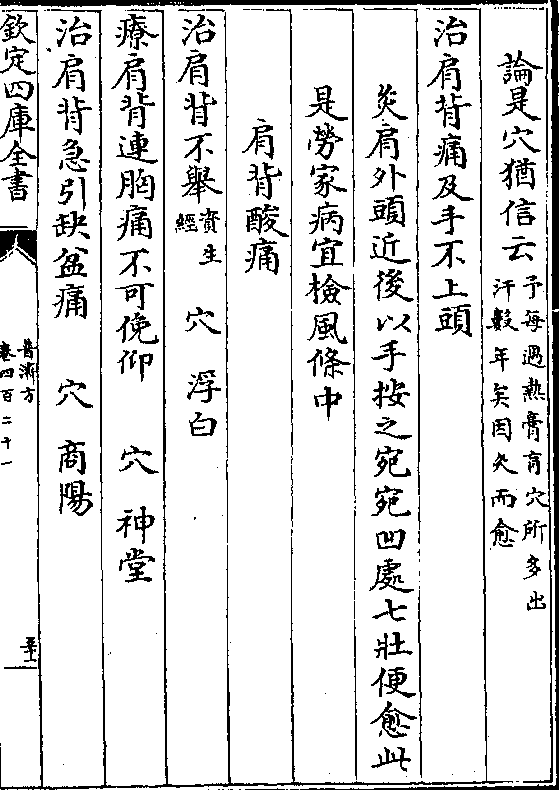 論是穴猶信云予每遇熱膏肓穴所多出汗數年矣因灸而愈
治肩背痛及手不上頭
灸肩外頭近後以手按之宛宛凹處七壯便愈此
是勞家病宜檢風條中
肩背酸痛
治肩背不舉資生經 穴 浮白
療肩背連胸痛不可俛仰 穴 神堂
治肩背急引缺盆痛 穴 商陽
欽定四庫全書
普濟方
卷四百二十一